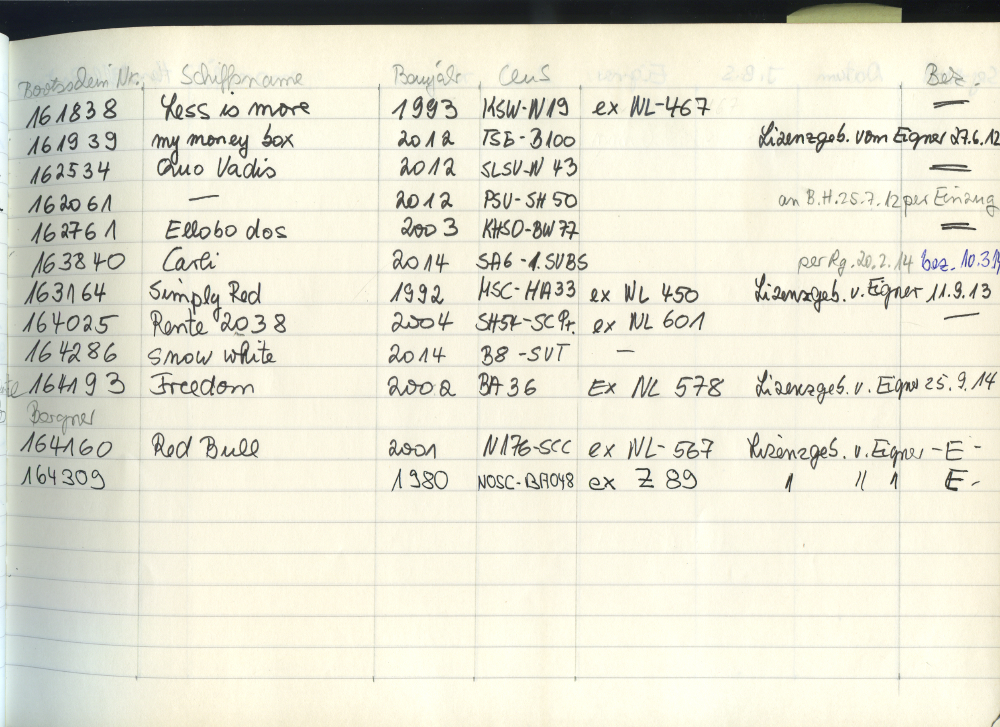 Bootsschein Nr. Schiffsname Baujahr CenS Bez
161838 Less is more 1993 KSW-N19 ex NL-467 =
161939 my money box 2012 TSE-B100 Lizenzgeb. vom Eigner 27.6.12
162534 Quo Vadis 2012 SLSV-N 43 =
162061 — 2012 PSV-SH 50 an B.H. 25.7.12 per Einzug
162761 Ellobo dos 2003 KHSO-BW77 =
163840 Carli 2014 SA6-1.SUBS per Rg. 20.2.14 bez. 10.3.14
163164 Simply Red 1992 MSC-HA33 ex NL 450 Lizenzgeb. v. Eigner 11.9.13
164025 Rente 2038 2004 ex NL 601 —
164286 snow white 2014 B8-SVT —
164193 Freedom 2002 BA36 Ex NL 578 Lizenzgeb. v. Eigner 25.9.14
Bergner
164160 Red Bull 2001 N176-SCC ex NL-567 Lizenzgeb. v. Eigner -E-
164309 1980 NOSC-BA048 ex Z 89 " " " E-